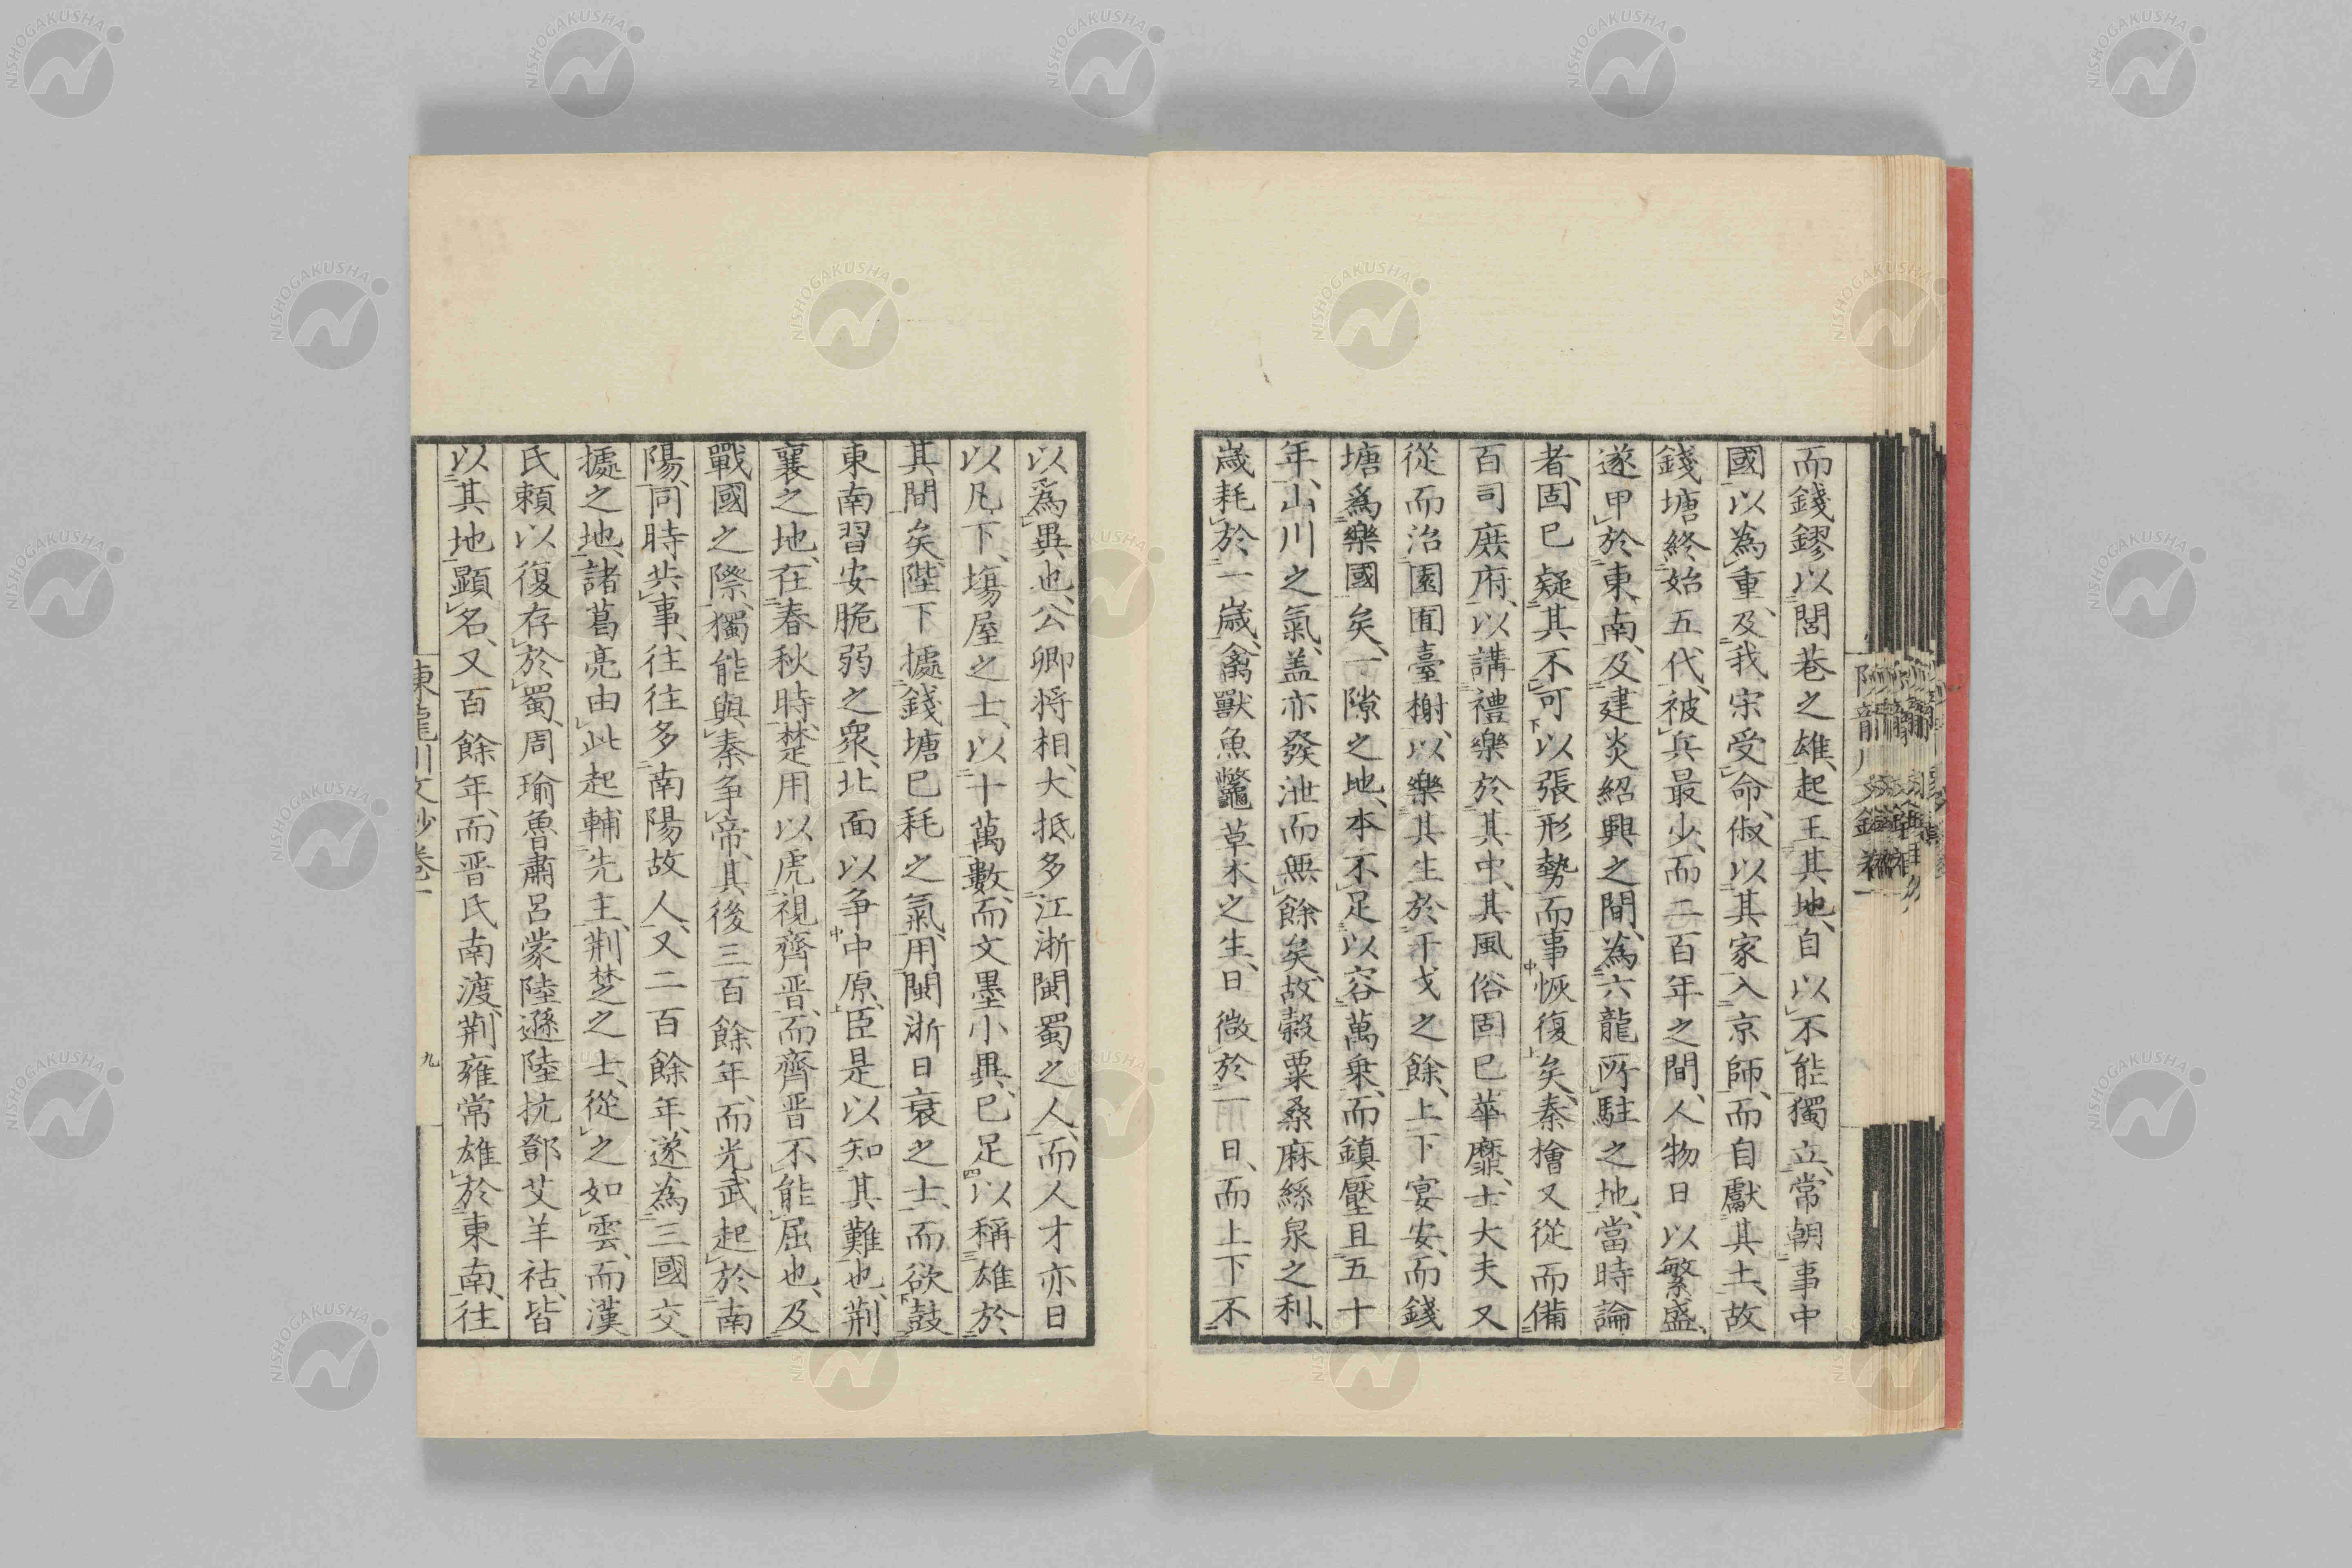 而錢鏐以閭巷之雄、起王其地、自以不能獨立、常朝事中
國以為重、及我宋受命、俶以其家入京師、而自獻其土、故
錢塘終始五代、被兵最少、而二百年之間、人物日以繁盛、
遂甲於東南、及建炎紹興之間、為六龍所駐之地、當時論
者、固已疑其不可以張形勢而事恢復矣、秦檜又從而備
百司庶府、以講禮樂於其中、其風俗固已華靡、士大夫又
從而治園囿臺榭、以樂其生於干戈之餘、上下宴安、而錢
塘爲樂國矣、一隙之地、本不足以容萬乘、而鎮壓且五十
年、山川之氣、盖亦發泄而無餘矣、故穀粟桑麻絲枲之利、
歳耗於一歳、禽獸魚鼈草木之生、日微於一日、而上下不
以為異也、公卿将相、大抵多江浙閩蜀之人、而人才亦日
以凡下、塲屋之士、以十萬數、而文墨小異、已足以稱雄於
其間矣、陛下據錢塘已耗之氣、用閩浙日衰之士、而欲鼓
東南習安脆弱之衆、北面以争中原、臣是以知其難也、荆
襄之地、在春秋時、楚用以虎視齊晋、而齊晋不能屈也、及
戰國之際、獨能與秦争帝、其後三百餘年、而光武起於南
陽、同時共事、往往多南陽故人、又二百餘年、遂為三國交
據之地、諸葛亮由此起輔先主、荆楚之士、從之如雲、而漢
氏頼以復存於蜀、周瑜魯肅呂蒙陸遜陸抗鄧艾羊祜、皆
以其地顕名、又百餘年、而晋氏南渡、荆雍常雄於東南、往
陳龍川文鈔卷一
九
NISHOGAKUSHA